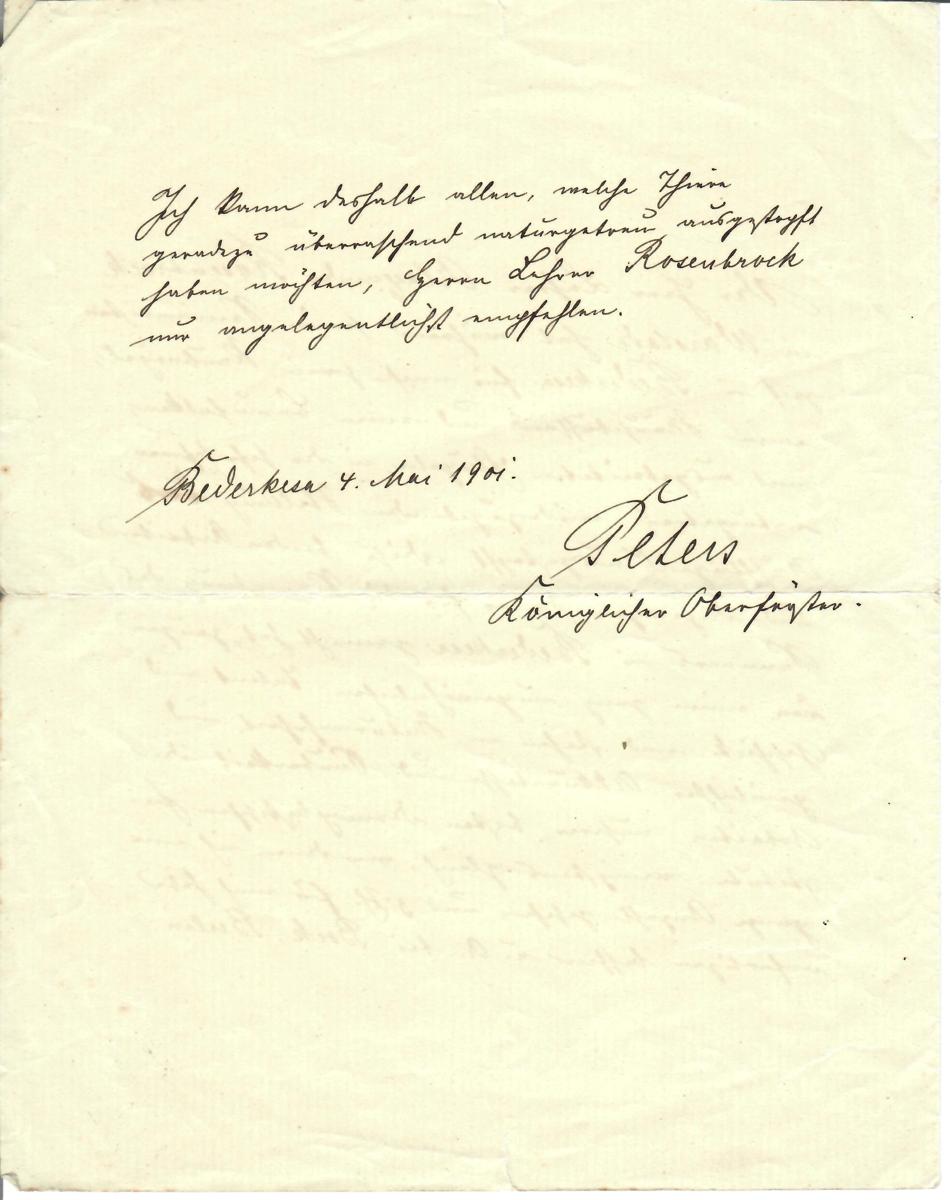 Ich kann deshalb allen, welche Thiere
geradezu überraschend naturgetreu ausgestopft
haben möchten, Herrn Lehrer Rosenbrock
nur angelegentlichst empfehlen.
Bederkesa 4. Mai 1901.
Peters
Königlicher Oberförster.